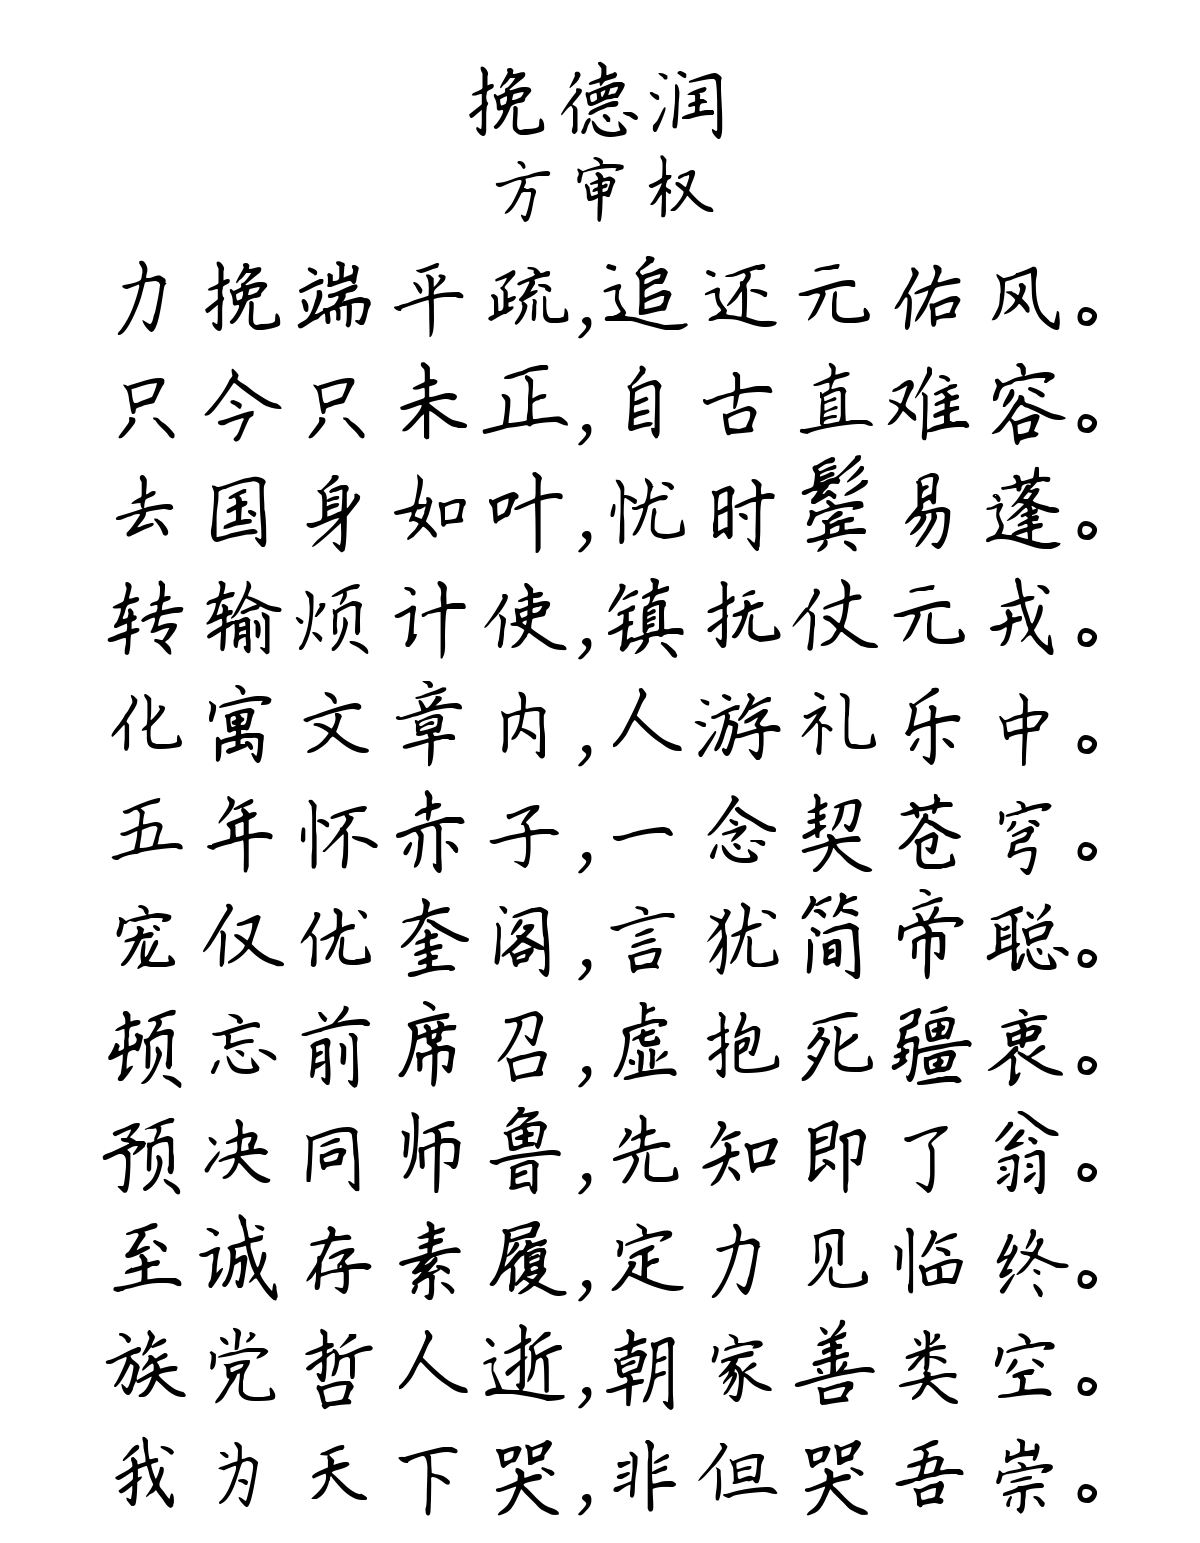 挽德润
方审权
力挽端平疏,追还元佑风。
只今只未正,自古直难容。
去国身如叶,忧时鬓易蓬。
转输烦计使,镇抚仗元戎。
化寓文章内,人游礼乐中。
五年怀赤子,一念契苍穹。
宠仅优奎阁,言犹简帝聪。
顿忘前席召,虚抱死疆衷。
预决同师鲁,先知即了翁。
至诚存素履,定力见临终。
族党哲人逝,朝家善类空。
我为天下哭,非但哭吾崇。